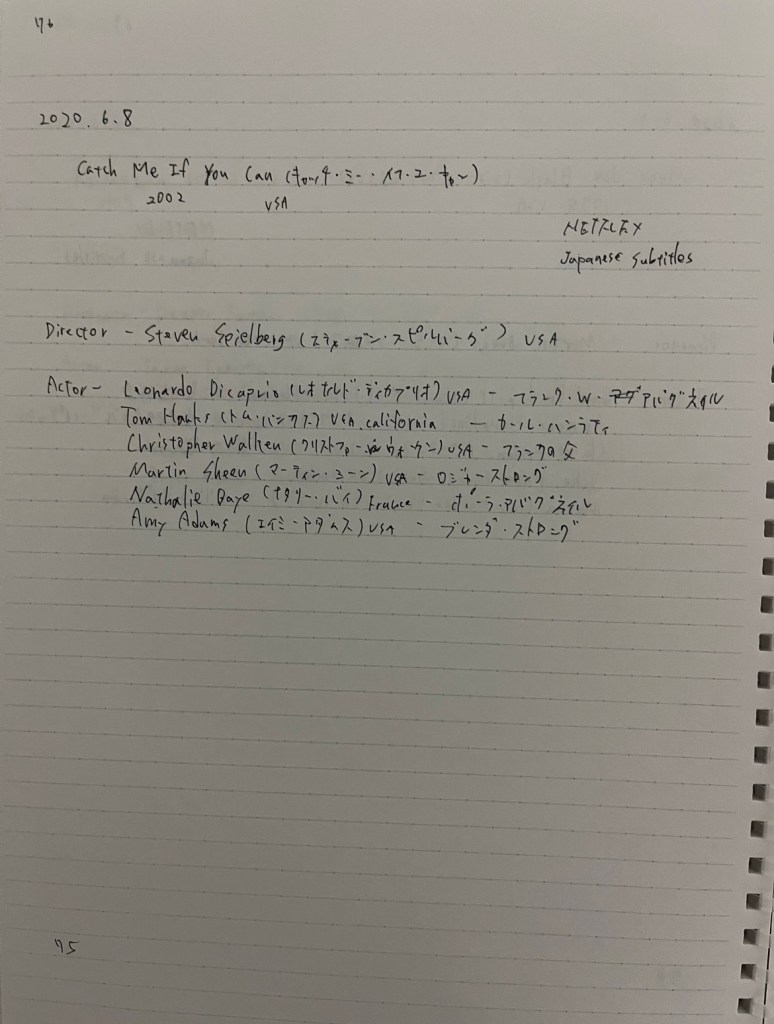 76
2020.6.8
Catch Me If You Can (キャッチ・ミー・イフ・ユー・キャン)
2002 USA
NETFLEX
Japanese Subtitles
Director - Steven Spielberg (スティーブン・スピルバーグ) USA
Actor - Leonardo Dicaprio (レオナルド・ディカプリオ) USA - フランク・W・アバグネイル
Tom Hanks (トム・ハンクス) USA, california - カール・ハンラティ
Christopher Walken (クリストファー・ウォーケン) USA - フランクの父
Martin Sheen (マーティン・シーン) USA - ロジャーストロング
Nathalie Baye (ナタリー・バイ) France - ポーラ・アバグネイル
Amy Adams (エイミーアダムス) USA - ブレンダ・ストロング
75